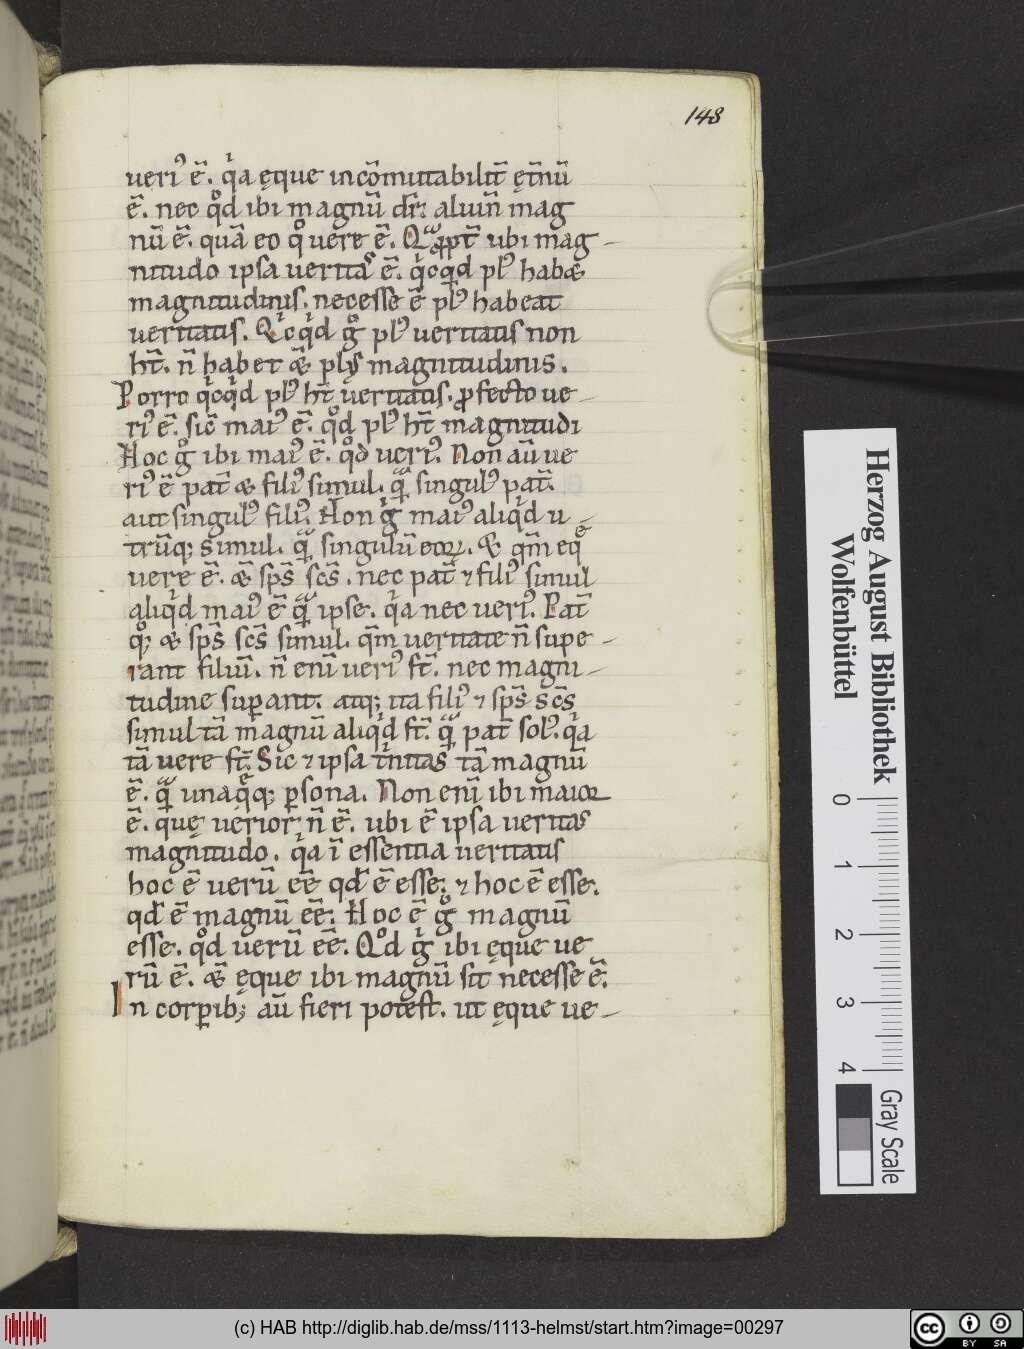 148
ueriꝰ ē. qͥa ęque incōmutabilit̄ ęt̄nū
ē. nec qͦd ibi magnū dr̄: aluin̄ mag
nū ē. quā eo qͦ uere ē. Qͣꝓpt̄ ubi mag-
nitudo ipsa ueritas ē. qͥcqͥd plꝰ habꝫ
magnitudinis. necesse ē plꝰ habeat
ueritatis. Qͥcqͥd gͦ plꝰ ueritatis non
ht̄. n̄ habet & plꝰ magnitudinis.
Porro qͥcqͥd plꝰ ht̄ ueritatis. ꝓfecto ue-
riꝰ ē. sic̄ maiꝰ ē. qͦd plꝰ ht̄ magnitudi
Hoc gͦ ibi maiꝰ ē. qͦd ueriꝰ. Non aū ue
riꝰ ē pat̄ & filiꝰ simul. qͣ̄ singulꝰ pat̄.
aut singulꝰ filiꝰ. Non gͥ maiꝰ aliqͥd u-
trūq; simul. qͣ̄ singulū eoꝝ. & qm̄ eqͤ
uere ē. & sp̄s sc̄s. nec pat̄ ⁊ filiꝰ simul
aliqͥd maiꝰ ē qͣ̄ ipse. qͥa nec ueriꝰ. Pat̄
qͦ; & sp̄s sc̄s simul. qm̄ ueritate n̄ supe-
rant filiū. n̄ enī ueriꝰ st̄. nec magni-
tudine suꝑant. atq; ita filiꝰ ⁊ sp̄s sc̄s
simul tā magnū aliqͥd st̄. qͣ̄ pat̄ solꝰ. qͥa
tā uere st̄. Sic ⁊ ipsa t̄nitas tā magnū
ē. qͣ̄ unaqͤq; ꝑsona. Non enī ibi maior
ē. quę uerior n̄ ē. ubi ē ipsa ueritas
magnitudo. qͥa ī essentia ueritatis
hoc ē uerū eē qd̄ ē esse. ⁊ hoc ē esse.
qd̄ ē magnū eē. Hoc ē gͦ magnū
esse. qͦd uerū eē. Qͦd gͥ ibi ęque ue
rū ē. & ęque ibi magnū sit necesse ē.
In corꝑib; aū fieri potest. ut ęque ue-
Herzog August Bibliothek
Wolfenbüttel
0 1 2 3 4
Gray Scale
(c) HAB http://diglib.hab.de/mss/1113-helmst/start.htm?image=00297
cc BY SA